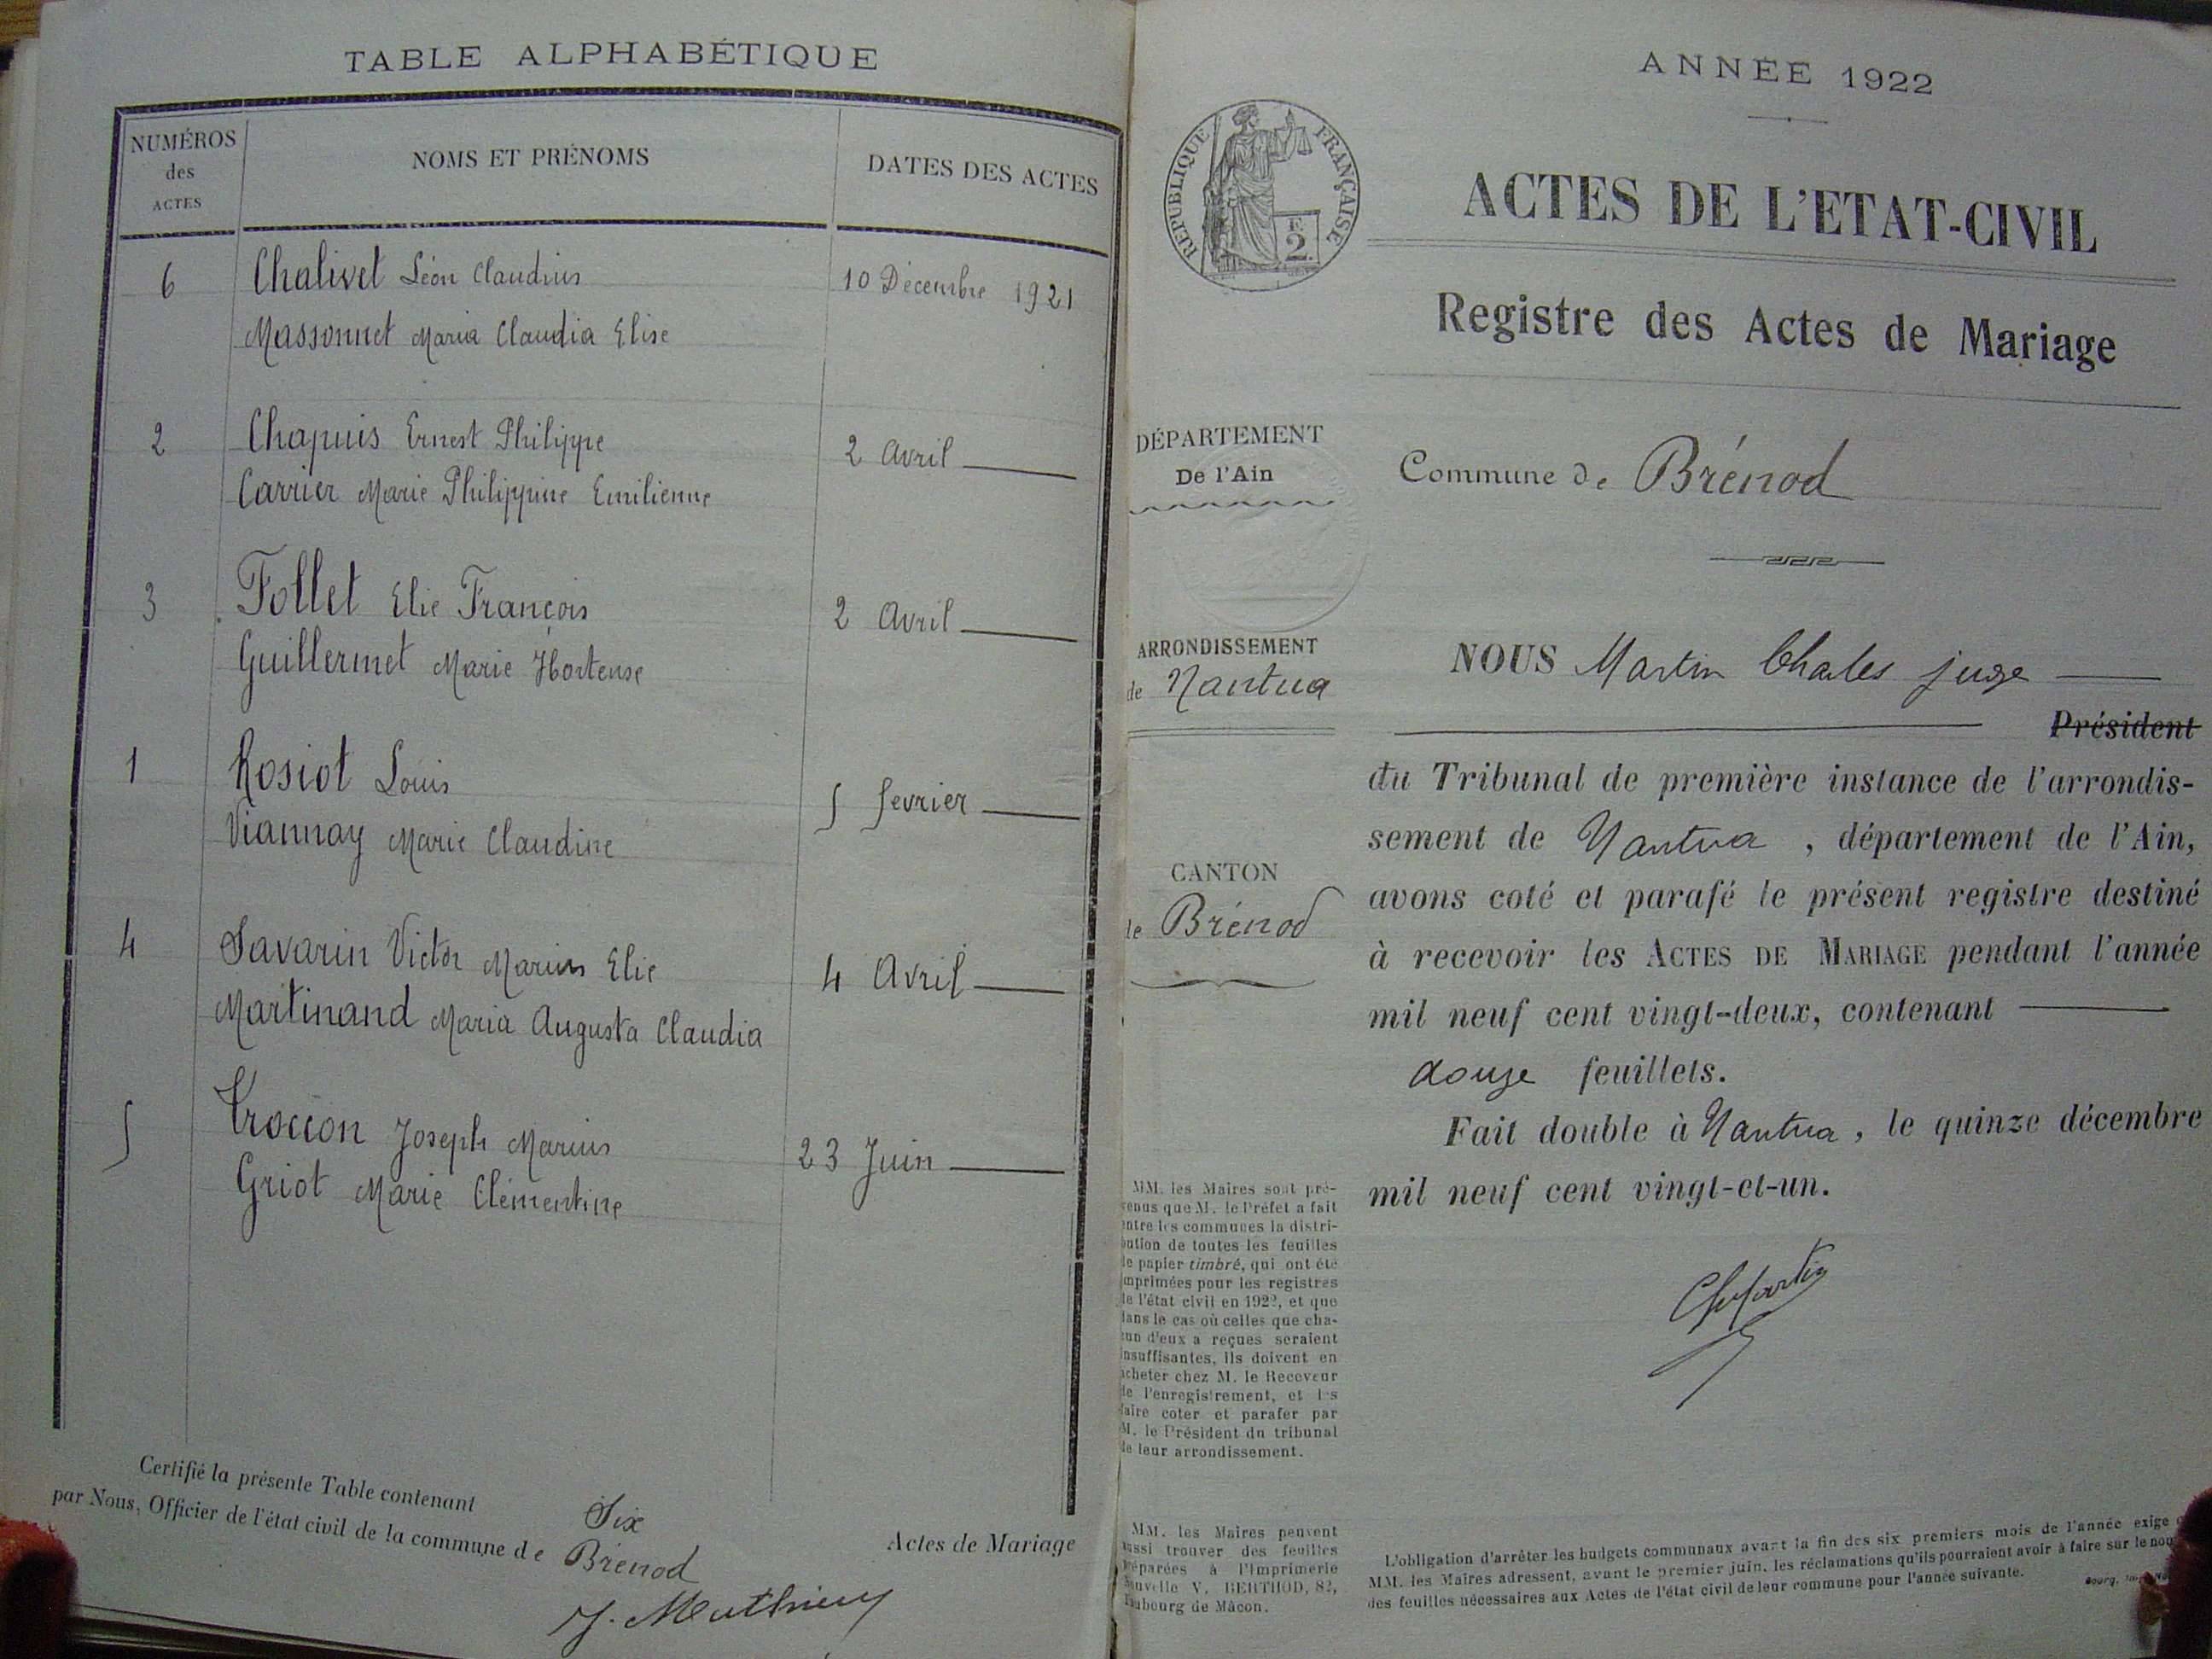 TABLE ALPHABÉTIQUE
NUMÉROS
des
ACTES
NOMS ET PRÉNOMS
DATES DES ACTES
6 Chalivet Léon Claudius 10 Décembre 1921
Massonnet Maria Claudia Elise
2 Chapuis Ernest Philippe 2 Avril
Carrier Marie Philippine Emilienne
3 Follet Elie François 2 Avril
Guillermet Marie Hortense
1 Rosiot Louis 5 fevrier
Viannay Marie Claudine
4 Savarin Victor Marius Elie 4 Avril
Martinand Maria Augusta Claudia
5 Troccon Joseph Marius 23 Juin
Griot Marie Clémentine
Certifié la présente Table contenant Six Actes de Mariage
par Nous, Officier de l'état civil de la commune de Brénod
ANNÉE 1922
RÉPUBLIQUE FRANÇAISE
F.
2.
ACTES DE L'ETAT-CIVIL
Registre des Actes de Mariage
DÉPARTEMENT
De l'Ain
ARRONDISSEMENT
de Nantua
CANTON
de Brénod
MM. les Maires sont pré-
venus que M. le Préfet a fait
entre les communes la distri-
bution de toutes les feuilles
de papier timbré, qui ont été
imprimées pour les registres
de l'état civil en 1922, et que
dans le cas où celles que cha-
cun d'eux a reçues seraient
insuffisantes, ils doivent en
acheter chez M. le Receveur
de l'enregistrement, et les
faire coter et parafer par
M. le Président du tribunal
de leur arrondissement.
MM. les Maires peuvent
aussi trouver des feuilles
préparées à l'Imprimerie
Nouvelle V. BERTHOD, 82,
Faubourg de Mâcon.
Commune de Brénod
NOUS Martin Charles juge
Président
du Tribunal de première instance de l'arrondis-
sement de Nantua, département de l'Ain,
avons coté et parafé le présent registre destiné
à recevoir les ACTES DE MARIAGE pendant l'année
mil neuf cent vingt-deux, contenant
douze feuillets.
Fait double à Nantua, le quinze décembre
mil neuf cent vingt-et-un.
L'obligation d'arrêter les budgets communaux avant la fin des six premiers mois de l'année exige
MM. les Maires adressent, avant le premier juin, les réclamations qu'ils pourraient avoir à faire sur le
des feuilles nécessaires aux Actes de l'état civil de leur commune pour l'année suivante.
Bourg,